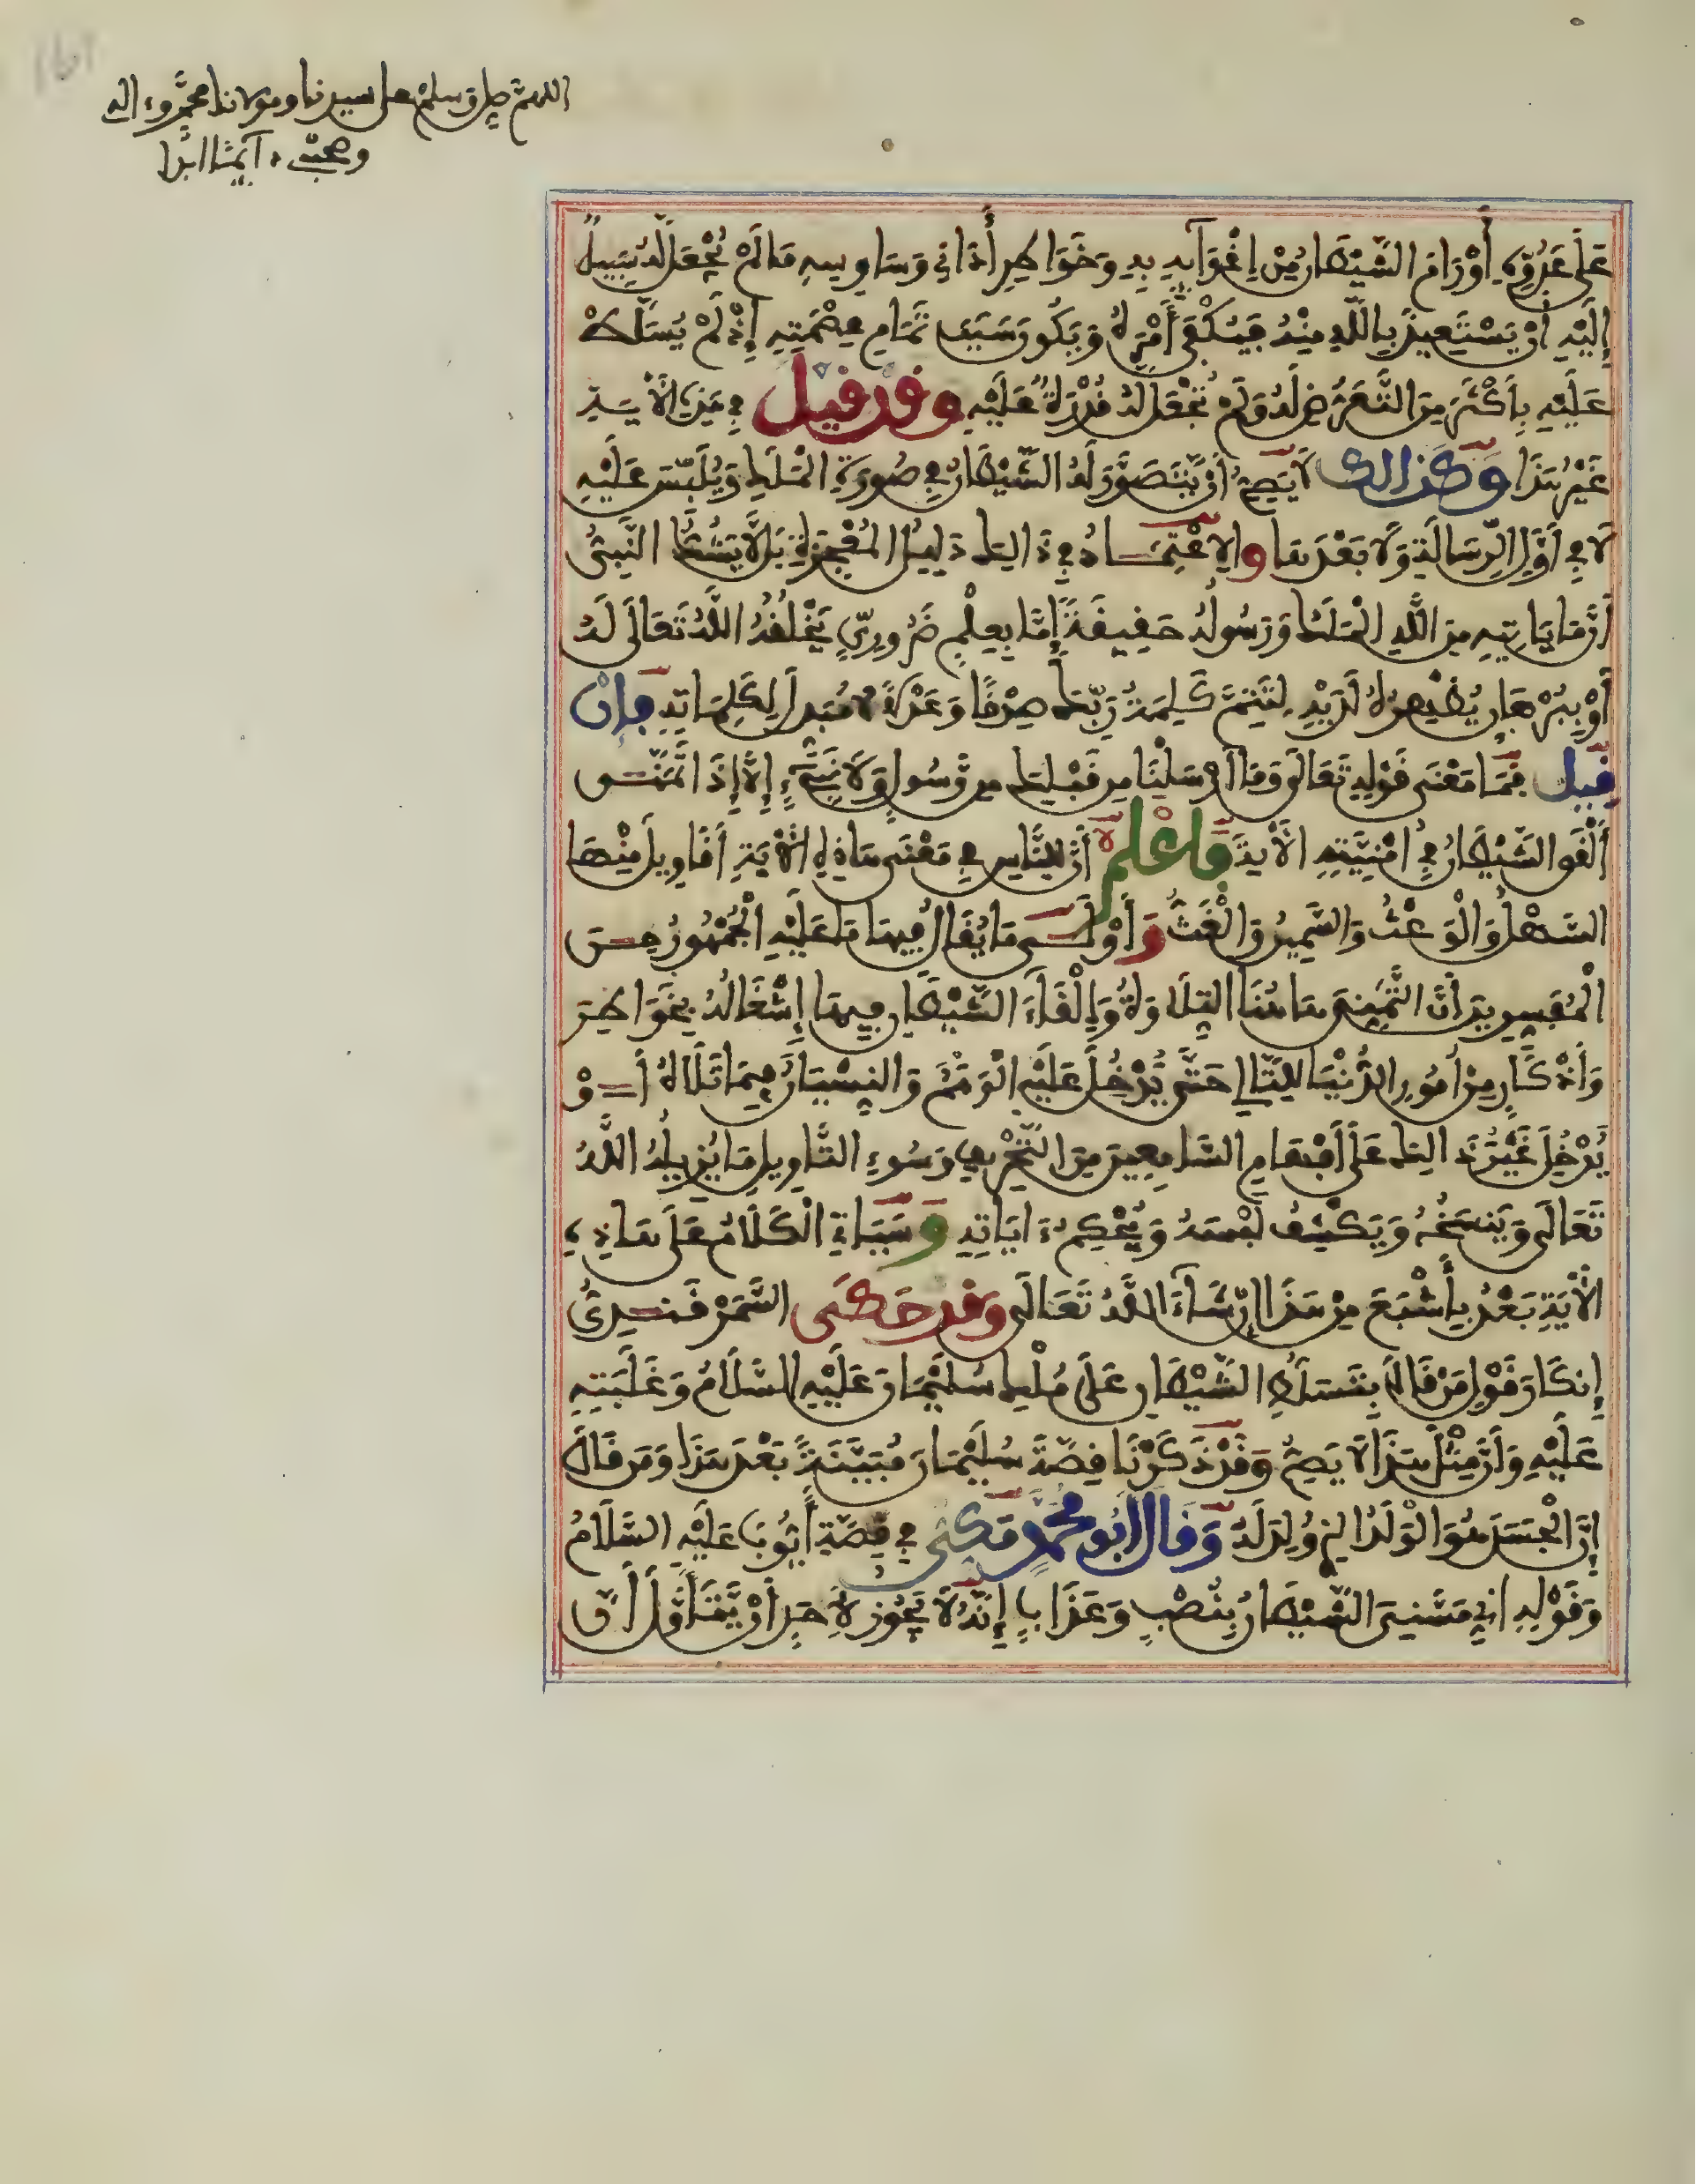 اللهم صل وسلم على سيدنا ومولانا محمد وءاله
وصحبه
عَلَى عَدُوِّهِ أَوْ رَامَ الشَّيْطَانُ مِنْ إِغْوَآيِهِ بِهِ وَخَوَاطِرِ أَدَانِي وَسَاوِسِهِ مَا لَمْ يُجْعَلْ لَهُ سَبِيلٌ
إِلَيْهِ أَنْ يَسْتَعِيذَ بِاللَّهِ مِنْهُ فَيُكْفَى أَمْرَهُ وَيَكُونَ سَبَبَ تَمَامِ عِصْمَتِهِ إِذْ لَمْ يُسَلَّطْ
عَلَيْهِ بِأَكْثَرَ مِنَ التَّعَرُّضِ لَهُ وَلَمْ يُجْعَلْ لَهُ قُدْرَةٌ عَلَيْهِ وقد قيل فِي هَذِهِ الْأَيَةِ
غَيْرُ هَذَا وَكذالك لَا يَصِحُّ أَنْ يَتَصَوَّرَ لَهُ الشَّيْطَانُ فِي صُورَةِ الْمَلَكِ وَيُلَبِّسَ عَلَيْهِ
لَا فِي أَوَّلِ الرِّسَالَةِ وَلَا بَعْدَهَا والِاعْتِمَادُ فِي ذَالِكَ دَلِيلُ الْمُعْجِزَةِ بَلْ لَا يَشُكُّ النَّبِيُّ
أَنَّ مَا يَاتِيهِ مِنَ اللَّهِ الْمَلَكُ وَرَسُولُهُ حَقِيقَةً إِمَّا بِعِلْمٍ ضَرُورِيٍّ يَخْلُقُهُ اللَّهُ تَعَالَى لَهُ
أَوْ بِبُرْهَانٍ يُظْهِرُهُ لَدَيْهِ لِتَتِمَّ كَلِمَةُ رَبِّكَ صِدْقًا وَعَدْلًا لَا مُبَدِّلَ لِكَلِمَاتِهِ فإن
قيل فَمَا مَعْنَى قَوْلِهِ تَعَالَى وَمَا أَرْسَلْنَا مِن قَبْلِكَ مِن رَّسُولٍ وَلَا نَبِيٍّ إِلَّا إِذَا تَمَنَّى
أَلْقَى الشَّيْطَانُ فِي أُمْنِيَّتِهِ الْأَيَةَ فاعْلم أَنَّ لِلنَّاسِ فِي مَعْنَى هَاذِهِ الْأَيَةِ أَقَاوِيلَ مِنْهَا
السَّهْلُ وَالْوَعْثُ وَالسَّمِينُ وَالْغَثُّ وَأَوْلَى مَا يُقَالُ فِيهَا مَا عَلَيْهِ الْجُمْهُورُ مِنَ
الْمُفَسِّرِينَ أَنَّ التَّمَنِّيَ هَاهُنَا التِّلَاوَةُ وَإِلْقَاءَ الشَّيْطَانِ فِيهَا إِشْغَالُهُ بِخَوَاطِرَ
وَأَذْكَارٍ مِنْ أُمُورِ الدُّنْيَا لِلتَّالِي حَتَّى يُدْخِلَ عَلَيْهِ الْوَهْمَ وَالنِّسْيَانَ فِيمَا تَلَاهُ أَوْ
يُدْخِلَ غَيْرَ ذَالِكَ عَلَى أَفْهَامِ السَّامِعِينَ مِنَ التَّحْرِيفِ وَسُوءِ التَّاوِيلِ مَا يُزِيلُهُ اللَّهُ
تَعَالَى وَيَنْسَخُهُ وَيَكْشِفُ لَبْسَهُ وَيُحْكِمُ ءَايَاتِهِ وَسَيَاتِي الْكَلَامُ عَلَى هَاذِهِ
الْأَيَةِ بَعْدُ بِأَشْبَعَ مِنْ هَذَا إِنْ شَاءَ اللَّهُ تَعَالَى وَقد حَكَى السَّمَرْقَنْدِيُّ
إِنْكَارَ قَوْلِ مَنْ قَالَ بِتَسَلُّطِ الشَّيْطَانِ عَلَى مُلْكِ سُلَيْمَانَ عَلَيْهِ السَّلَامُ وَغَلَبَتِهِ
عَلَيْهِ وَأَنَّ مِثْلَ هَذَا لَا يَصِحُّ وَقَدْ ذَكَرْنَا قِصَّةَ سُلَيْمَانَ مُبَيَّنَةً بَعْدَ هَذَا وَمَن قَالَ
إِنَّ الْجَسَدَ هُوَ الْوَلَدُ الذِي وُلِدَ لَهُ وَقال أبو محمد مَكي فِي قِصَّةِ أَيُّوبَ عَلَيْهِ السَّلَامُ
وَقَوْلِهِ أَنِّي مَسَّنِيَ الشَّيْطَانُ بِنُصْبٍ وَعَذَابٍ إِنَّهُ لَا يَجُوزُ لِأَحَدٍ أَنْ يَّتَأَوَّلَ أَنَّ